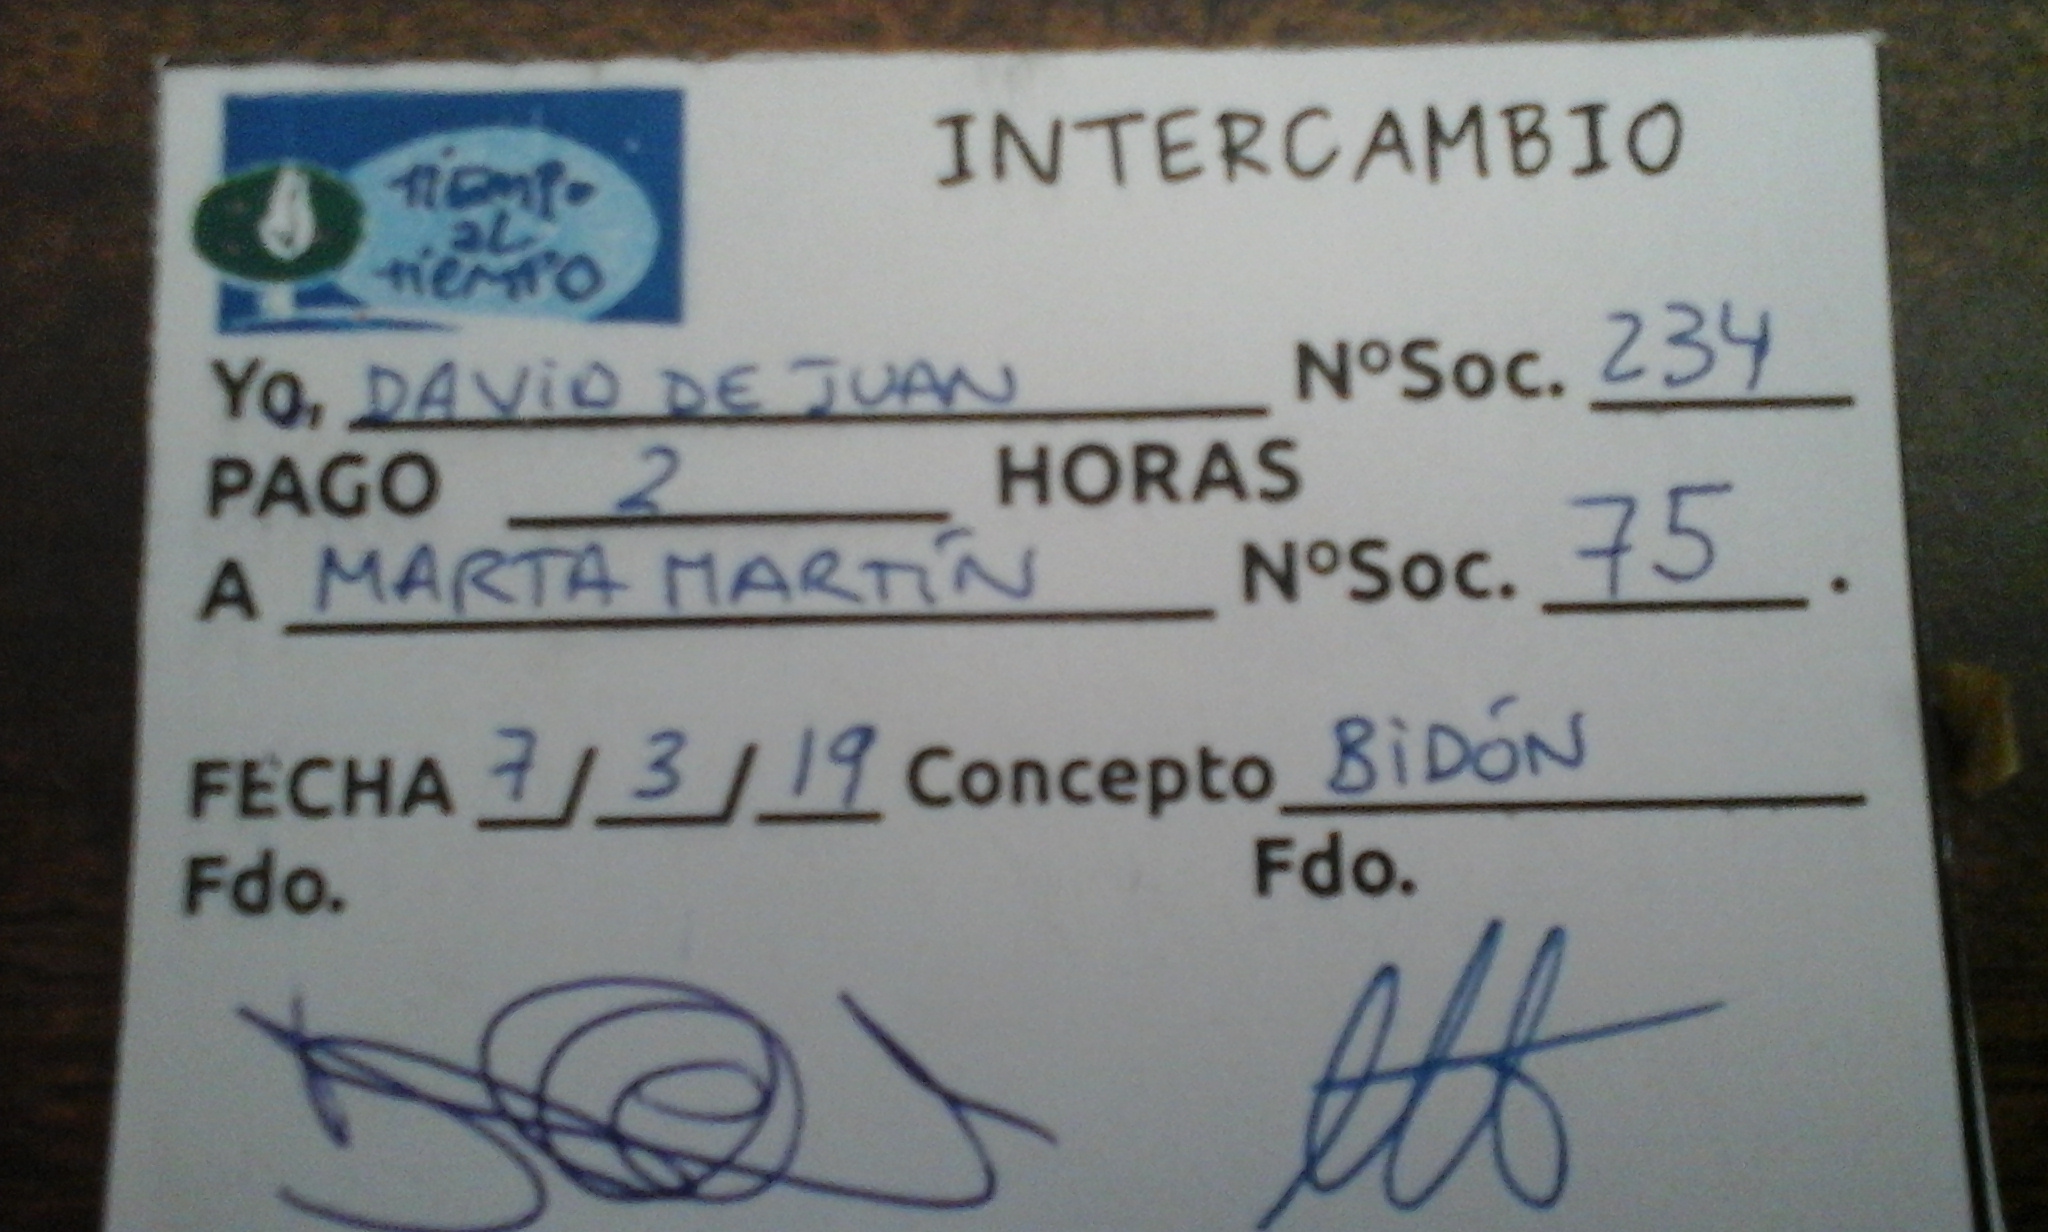 tiempo
al
tiempo
INTERCAMBIO
Yo, DAViD DE JUAN NºSoc. 234
PAGO 2 HORAS
A MARTA MARTÍN NºSoc. 75.
FECHA 7/3/19 Concepto BiDÓN
Fdo. Fdo.